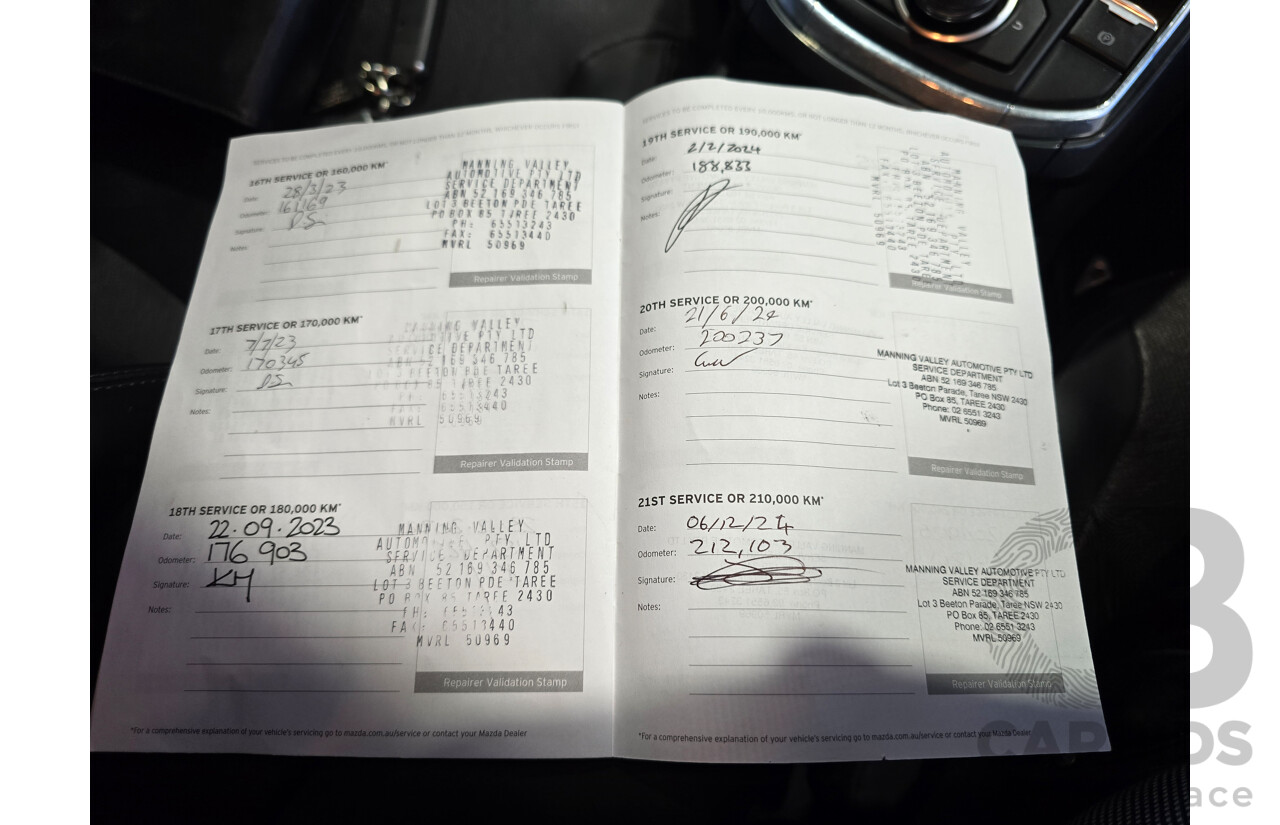 SERVICES TO BE COMPLETED EVERY 10,000KMS, OR NOT LONGER THAN 12 MONTHS, WHICHEVER OCCURS FIRST
16TH SERVICE OR 160,000 KM*
Date: 28/3/23
Odometer: 161169
Signature:
Notes:
MANNING VALLEY
AUTOMOTIVE PTY LTD
SERVICE DEPARTMENT
ABN 52 169 346 785
LOT 3 BEETON PDE TAREE
PO BOX 85 TAREE 2430
PH: 65513243
FAX: 65513440
MVRL 50969
Repairer Validation Stamp
17TH SERVICE OR 170,000 KM*
Date: 7/7/23
Odometer: 170345
Signature:
Notes:
VALLEY
PTY LTD
DEPARTMENT
169 346 785
BEETON PDE TAREE
TAREE 2430
65513243
65513440
MVRL 50969
Repairer Validation Stamp
18TH SERVICE OR 180,000 KM*
Date: 22.09.2023
Odometer: 176 903
Signature: KM
Notes:
MANNING VALLEY
AUTOMOTIVE PTY LTD
SERVICE DEPARTMENT
ABN 52 169 346 785
LOT 3 BEETON PDE TAREE
PO BOX 85 TAREE 2430
PH: 65513243
FAX: 65513440
MVRL 50969
Repairer Validation Stamp
*For a comprehensive explanation of your vehicle's servicing go to mazda.com.au/service or contact your Mazda Dealer
SERVICES TO BE COMPLETED EVERY 10,000KMS, OR NOT LONGER THAN 12 MONTHS, WHICHEVER OCCURS FIRST
19TH SERVICE OR 190,000 KM*
Date: 2/2/2024
Odometer: 188,833
Signature:
Notes:
Repairer Validation Stamp
20TH SERVICE OR 200,000 KM*
Date: 21/6/24
Odometer: 200237
Signature:
Notes:
MANNING VALLEY AUTOMOTIVE PTY LTD
SERVICE DEPARTMENT
ABN 52 169 346 785
Lot 3 Beeton Parade, Taree NSW 2430
PO Box 85, TAREE 2430
Phone: 02 6551 3243
MVRL 50969
Repairer Validation Stamp
21ST SERVICE OR 210,000 KM*
Date: 06/12/24
Odometer: 212,103
Signature:
Notes:
MANNING VALLEY AUTOMOTIVE PTY LTD
SERVICE DEPARTMENT
ABN 52 169 346 785
Lot 3 Beeton Parade, Taree NSW 2430
PO Box 85, TAREE 2430
Phone: 02 6551 3243
MVRL 50969
Repairer Validation Stamp
*For a comprehensive explanation of your vehicle's servicing go to mazda.com.au/service or contact your Mazda Dealer